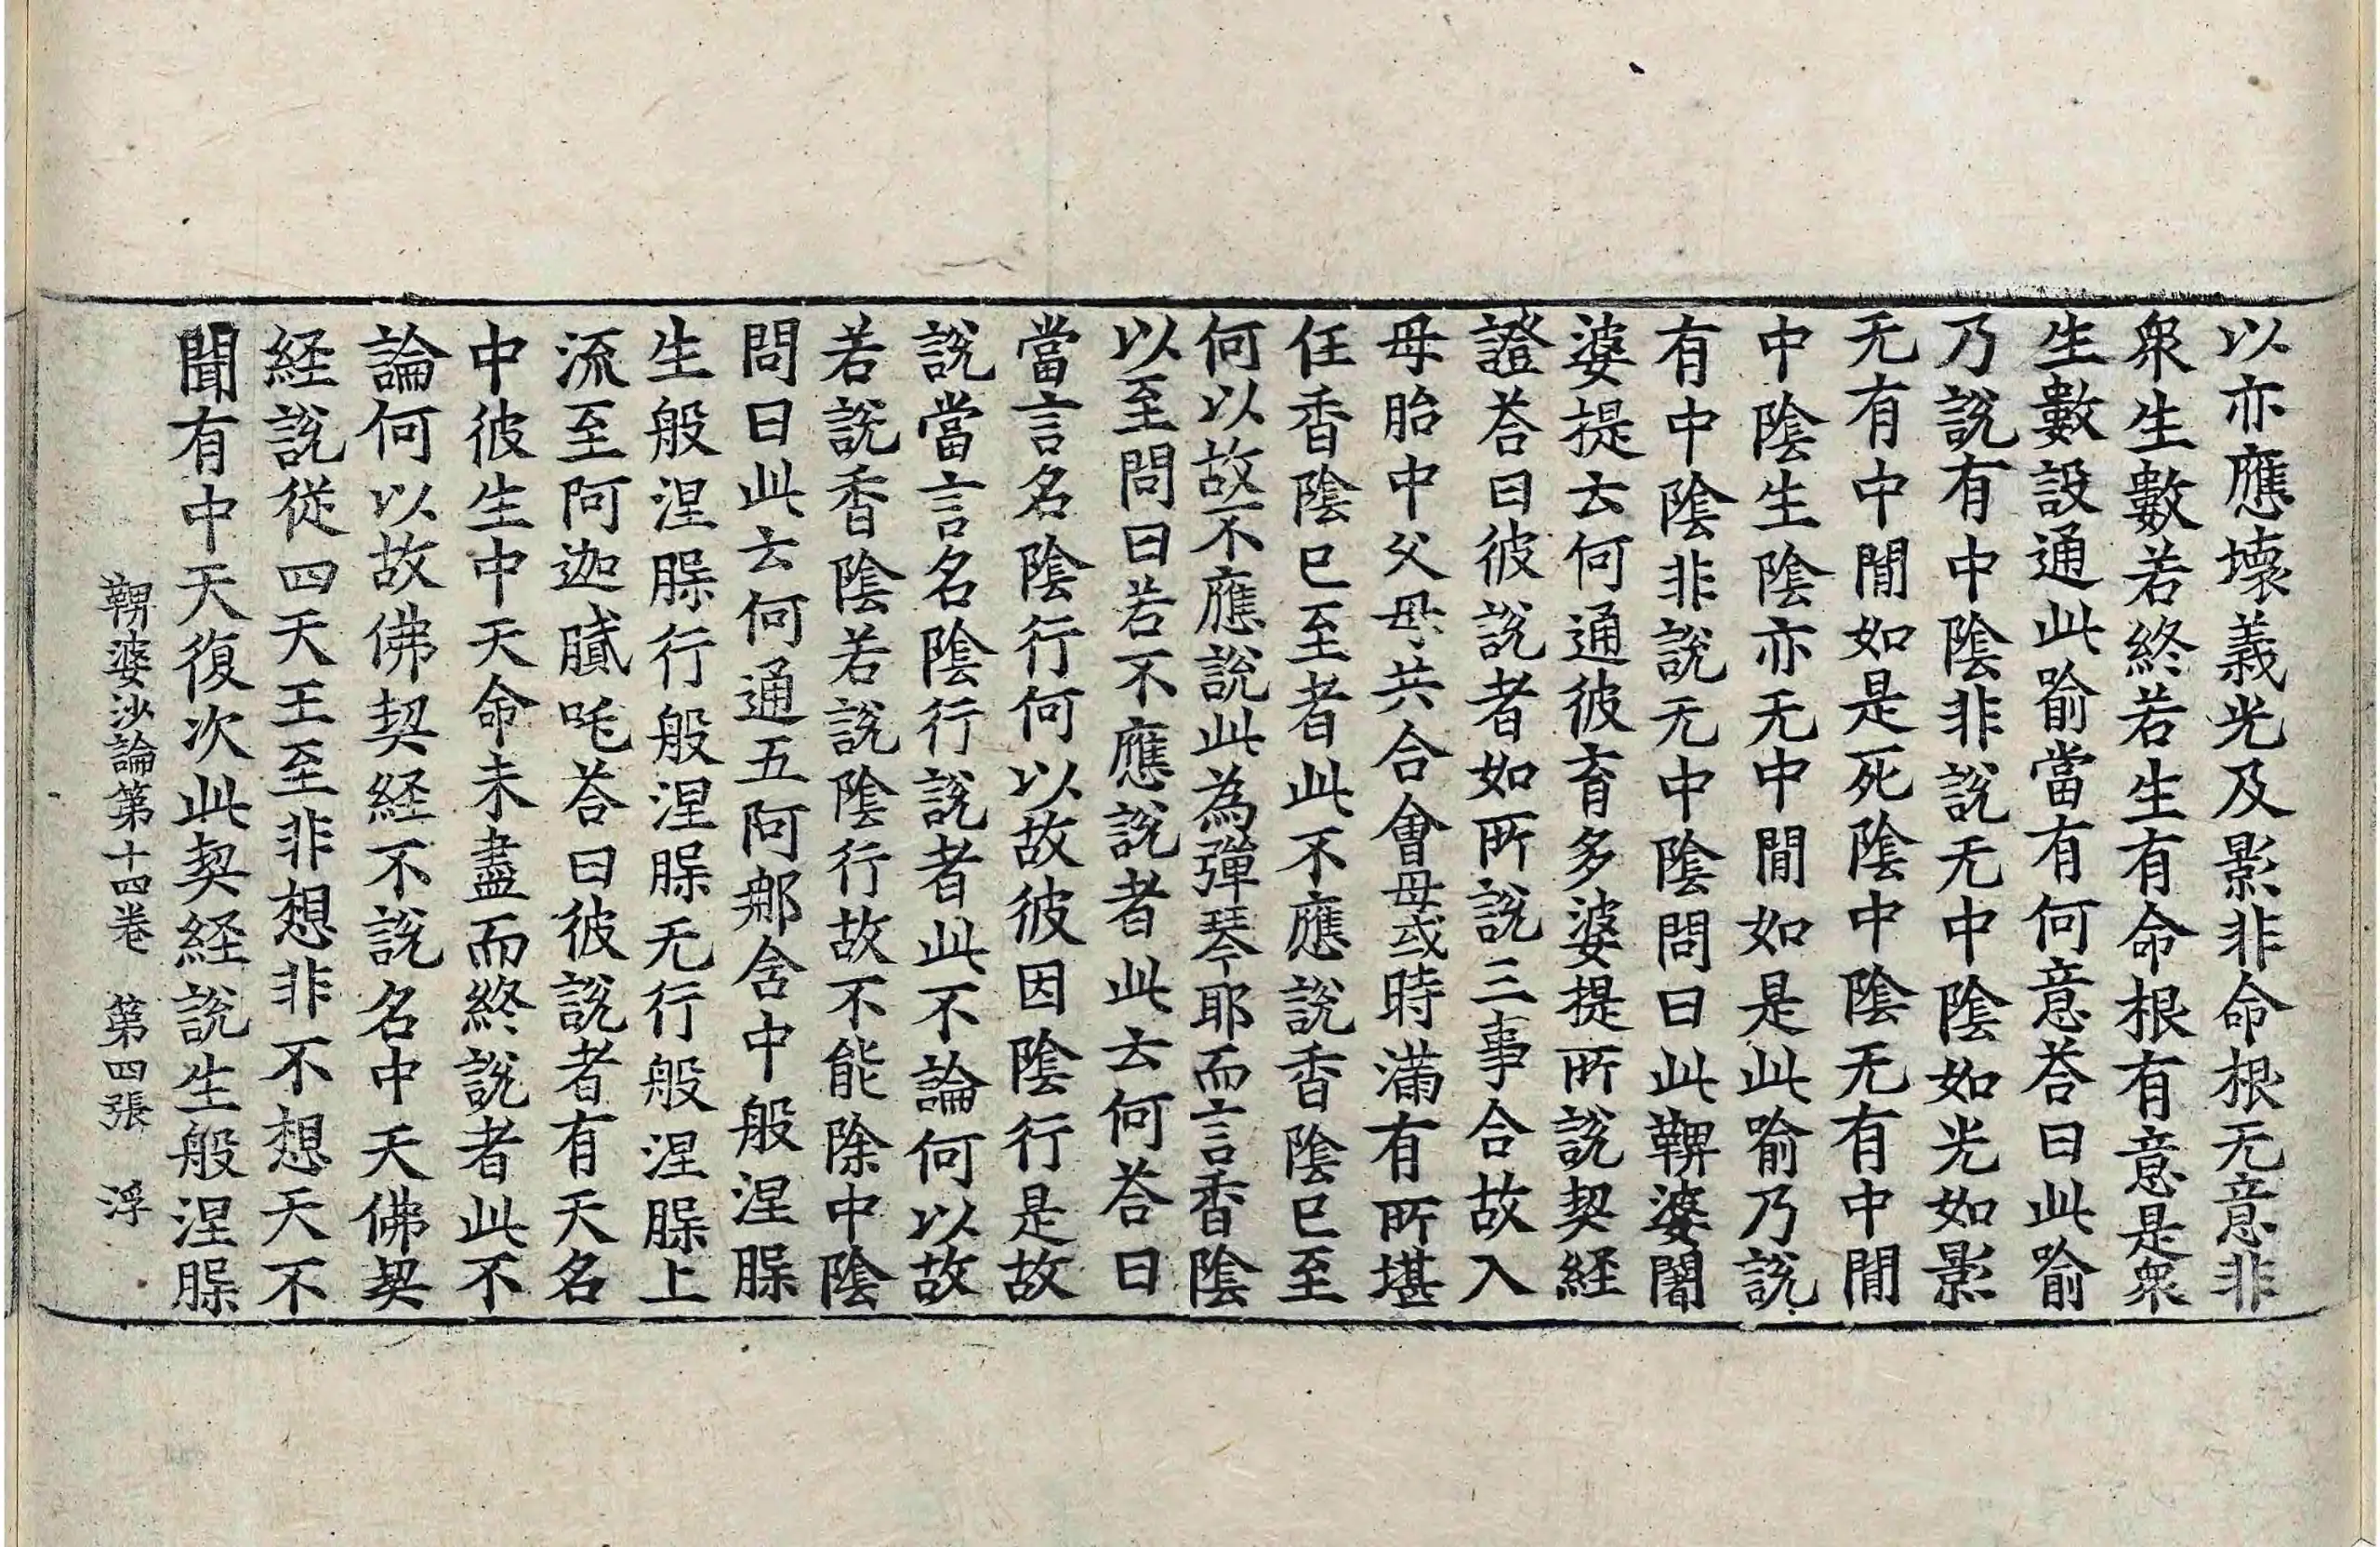 以亦應壞義光及影非命根无意非
衆生數若終若生有命根有意是衆
生數設通此喻當有何意荅曰此喻
乃說有中陰非說无中陰如光如影
无有中閒如是死陰中陰无有中閒
中陰生陰亦无中閒如是此喻乃說
有中陰非說无中陰問曰此鞞婆闍
婆提去何通彼育多婆提所說契経
證荅曰彼說者如所說三事合故入
母胎中父母共合會母或時滿有所堪
任香陰已至者此不應說香陰已至
何以故不應說此為彈琴耶而言香陰
以至問曰若不應說者此去何荅曰
當言名陰行何以故彼因陰行是故
說當言名陰行說者此不論何以故
若說香陰若說陰行故不能除中陰
問曰此去何通五阿那含中般涅槃
生般涅槃行般涅槃无行般涅槃上
流至阿迦膩吒荅曰彼說者有天名
中彼生中天命未盡而終說者此不
論何以故佛契経不說名中天佛契
経說從四天王至非想非不想天不
聞有中天復次此契経說生般涅槃
鞞婆沙論第十四卷　第四張　浮